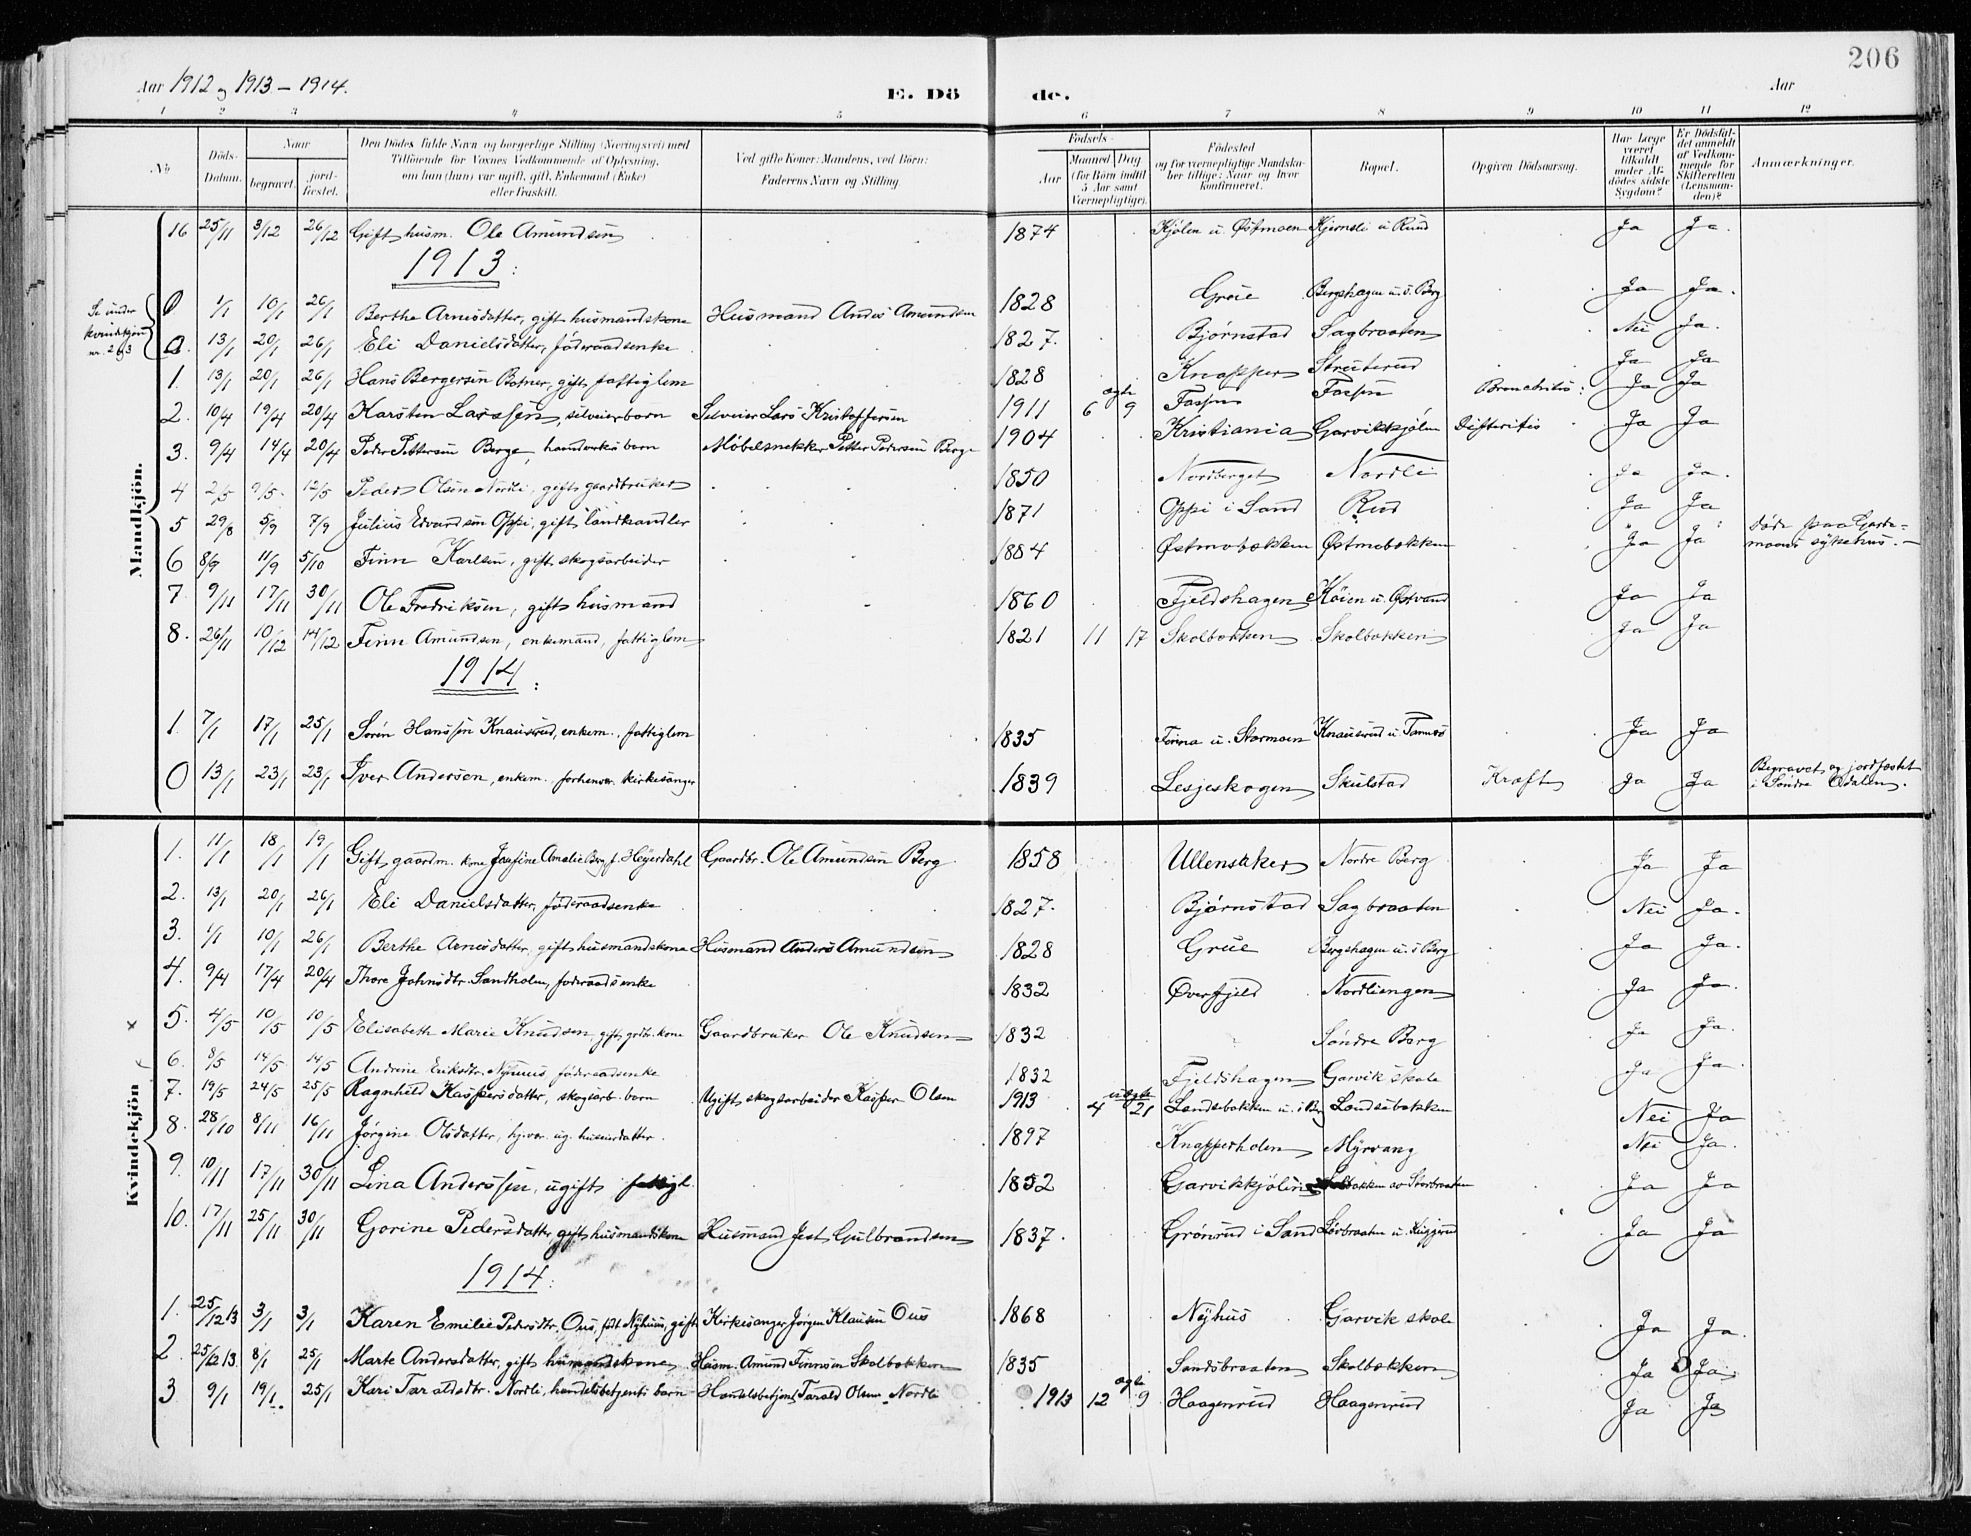 206
Aar 1912 og 1913 – 1914.
E. Dö de.
Aar
1 2 3 4 5 6 7 8 9 10 11 12
No
Döds-Datum.
Naar begravet. jord-fæstet.
Den Dödes fulde Navn og borgerlige Stilling (Næringsvei) med Tilföiende for Voxnes Vedkommende af Oplysning, om han (hun) var ugift, gift, Enkemand (Enke) eller fraskilt.
Ved gifte Koner: Mandens, ved Börn: Faderens Navn og Stilling
Födsels-
Aar
Maaned Dag (for Börn indtil 5 Aar samt Værnepligtige).
Födested og for værnepligtige Mandskaber tillige: Naar og hvor konfirmeret.
Bopæl.
Opgiven Dödsaarsag.
Har Læge været tilkaldt under Afdödes sidste Sygdom?
Er Dödsfaldet anmeldt af Vedkommende for Skifteretten (Lensmanden)?
Anmærkninger.
Mandkjön.
16 25/11 3/12 26/12 Gift husm. Ole Amundsen 1874 Kjølen u. Østmoen Kjernsli u Ruud Ja Ja.
1913:
Se under kvindekjøn nr. 2 og 3
0 1/1 10/1 26/1 Berthe Arnesdatter, gift husmandskone Husmand Anders Amundsen 1828 Grue Bergshagen u. s. Berg Ja Ja.
0. 13/1 20/1 26/1 Eli Danielsdatter, föderaadsenke 1827. Bjørnstad Sagbraaten Nei Ja.
1. 13/1 20/1 26/1 Hans Bergersen Botner, gift fattiglem 1828 Knapper Struterud Ja Ja
2. 10/4 19/4 20/4 Karsten Larssen, selveierbarn Selveier Lars Kristoffersen 1911 6 ægte 9 Fossen Fossen Bronchitis: Ja Ja
3. 9/4 14/4 20/4 Peder Pettersen Berge, handverks barn Møbelsnekker Petter Pedersen Berge 1904 Kristiania Garvikkjølen Difteritis Ja Ja
4 2/5 9/5 12/5 Peder Olsen Nordli, gift gaardbruker 1850 Nordberget Nordli Ja Ja.
5 29/8 5/9 7/9 Julius Edvardsen Oppi, gift landhandler 1871 Oppi i Sand Rud Ja Ja
6 8/9 11/9 5/10 Finn Karlsen, gift skogsarbeider 1884 Østmobækken Østmobækken Ja Ja Döde paa Garde-
moens sykehus. –
7. 9/11 17/11 30/11 Ole Fredriksen, gift husmand 1860 Fjeldshagen Köien u. Østvand Ja Ja
8. 26/11 10/12 14/12 Finn Amundsen, enkemand, fattiglem 1821 11 17 Skolbækken Skolbækken Ja Ja
1914:
1. 7/1 17/1 25/1 Søren Hanssen Knausrud, enkem., fattiglem 1835 u. Stormoen Knausrud u Ja Ja
0 13/1 23/1 23/1 Iver Andersen, enkem. forhenvær. kirkesanger 1839 Lesjeskogen Skulstad Kræft Ja Ja Begravet og jordfæstet
i Söndre Odalen.
Kvindekjön
1. 11/1 18/1 19/1 Gift gaardm. kone Josefine Amalie Berg f. Heyerdahl Gaardbr. Ole Amundsen Berg 1858 Ullensaker Nordre Berg Ja Ja
2. 13/1 20/1 26/1 Eli Danielsdatter, föderaadsenke 1827. Bjørnstad Sagbraaten Nei Ja.
3. 1/1 10/1 26/1 Berthe Arnesdatter, gift husmandskone Husmand Anders Amundsen 1828 Grue Bergshagen u. s Berg Ja Ja.
4. 9/4 17/4 20/4 Thore Johnsdtr. Sandholen, föderaadsenke 1832 Øverfjeld Nordliengen Ja Ja.
x 5. 4/5 10/5 10/5 Elisabeth Marie Knudsen, gift grdbr. kone Gaardbruker Ole Knudsen 1832 Søndre Berg Ja Ja.
6. 8/5 14/5 14/5 Andrine Eriksdtr. Nyhuus föderaadsenke 1832 Fjeldshagen Garvik skole Ja Ja.
7. 19/5 24/5 25/5 Ragnhild Kaspersdatter, skogsarb. barn Ugift skogsarbeider Kasper Olsen 1913 4 uægte 21 Londsebakken u. Londsebakken Nei Ja
8. 28/10 8/11 16/11 Jørgine Olsdatter, ug. 1897 Knapperholen Myrvang Nei Ja.
9. 10/11 17/11 30/11 Lina Anderssen, ugift fattigl. 1852 Garvikkjølen av Storbraaten Ja Ja
10. 17/11 25/11 30/11 Gorine Pedersdatter, gift husmandskone Husmand Jest Gulbrandsen 1837. Grønrud i Sand Lövbraaten u. Ja Ja
1914:
1. 25/12 13 3/1 3/1 Karen Emilie Pedersdtr. Ous, født Nyhuus, gift Kirkesanger Jørgen Klausen Ous 1868 Nyhus Garvik skole Ja Ja.
2 25/12 13. 8/1 25/1 Marte Andersdatter, gift husmandskone Husm. Amund Finnsen Skolbækken 1835 Sandsbraaten Skolbækken Ja Ja.
3 9/1 19/1 25/1 Kari Taraldsdtr. Nordli, handelsbetjents barn Handelsbetjent Tarald Olsen Nordli 1913 12 ægte 9 Haagenrud Haagenrud Ja Ja